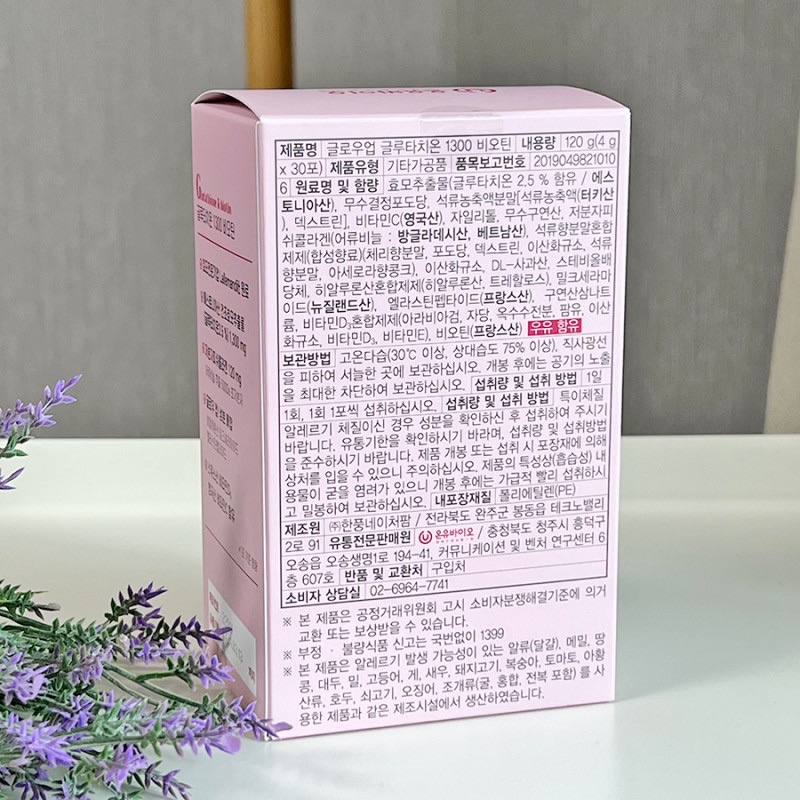 제품명 글로우업 글루타치온 1300 비오틴 내용량 120 g(4 g
x 30포) 제품유형 기타가공품 품목보고번호 2019049821010
6 원료명 및 함량 효모추출물(글루타치온 2.5 % 함유 / 에스
토니아산), 무수결정포도당, 석류농축액분말[석류농축액(터키산
), 덱스트린], 비타민C(영국산), 자일리톨, 무수구연산, 저분자피
쉬콜라겐(어류비늘 : 방글라데시산, 베트남산), 석류향분말혼합
제제(합성향료)(체리향분말, 포도당, 덱스트린, 이산화규소, 석류
향분말, 아세로라향콩크), 이산화규소, DL-사과산, 스테비올배
당체, 히알루론산혼합제제(히알루론산, 트레할로스), 밀크세라마
이드(뉴질랜드산), 엘라스틴펩타이드(프랑스산), 구연산삼나트
륨, 비타민D₃혼합제제(아라비아검, 자당, 옥수수전분, 팜유, 이산
화규소, 비타민D₃, 비타민E), 비오틴(프랑스산) 우유 함유
보관방법 고온다습(30℃ 이상, 상대습도 75% 이상), 직사광선
을 피하여 서늘한 곳에 보관하십시오. 개봉 후에는 공기의 노출
을 최대한 차단하여 보관하십시오. 섭취량 및 섭취 방법 1일
1회, 1회 1포씩 섭취하십시오. 섭취량 및 섭취 방법 특이체질
알레르기 체질이신 경우 성분을 확인하신 후 섭취하여 주시기
바랍니다. 유통기한을 확인하시기 바라며, 섭취량 및 섭취방법
을 준수하시기 바랍니다. 제품 개봉 또는 섭취 시 포장재에 의해
상처를 입을 수 있으니 주의하십시오. 제품의 특성상(흡습성) 내
용물이 굳을 염려가 있으니 개봉 후에는 가급적 빨리 섭취하시
고 밀봉하여 보관하십시오. 내포장재질 폴리에틸렌(PE)
제조원 ㈜한풍네이처팜 / 전라북도 완주군 봉동읍 테크노밸리
2로 91 유통전문판매원 온유바이오 / 충청북도 청주시 흥덕구
오송읍 오송생명1로 194-41, 커뮤니케이션 및 벤처 연구센터 6
층 607호 반품 및 교환처 구입처
소비자 상담실 02-6964-7741
※ 본 제품은 공정거래위원회 고시 소비자분쟁해결기준에 의거
교환 또는 보상받을 수 있습니다.
※ 부정 · 불량식품 신고는 국번없이 1399
※ 본 제품은 알레르기 발생 가능성이 있는 알류(달걀), 메밀, 땅
콩, 대두, 밀, 고등어, 게, 새우, 돼지고기, 복숭아, 토마토, 아황
산류, 호두, 쇠고기, 오징어, 조개류(굴, 홍합, 전복 포함) 를 사
용한 제품과 같은 제조시설에서 생산하였습니다.
Glutathione & biotin
글루타치온 1300 비오틴